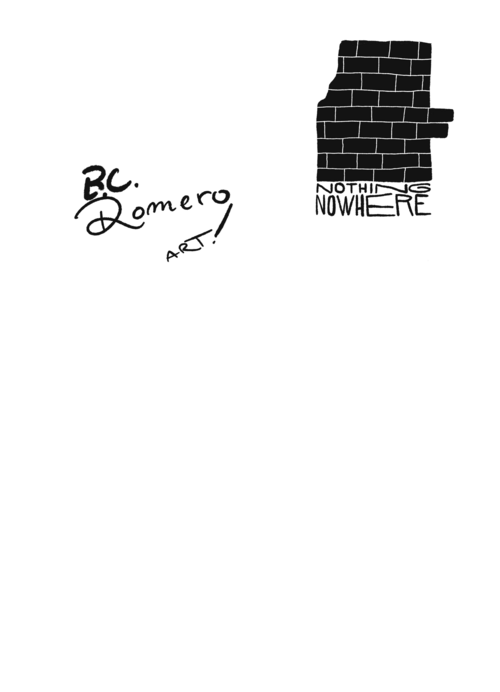 B.C.
Romero
ART!
NOTHING
NOWHERE